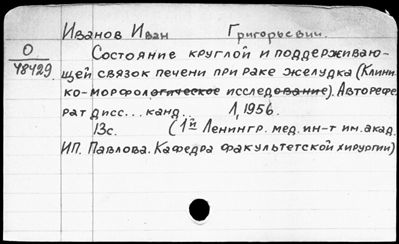 Иванов Иван Григорьевич.
О
48429.
Состояние круглой и поддерживаю-
щей связок печени при раке желудка (Клини-
ко-морфологическое исследование). Авторефе
рат дисс... канд. Л, 1956.
13с. (1й Ленингр. мед. ин-т им. акад.
ИП. Павлова. Кафедра факультетской хирургии)